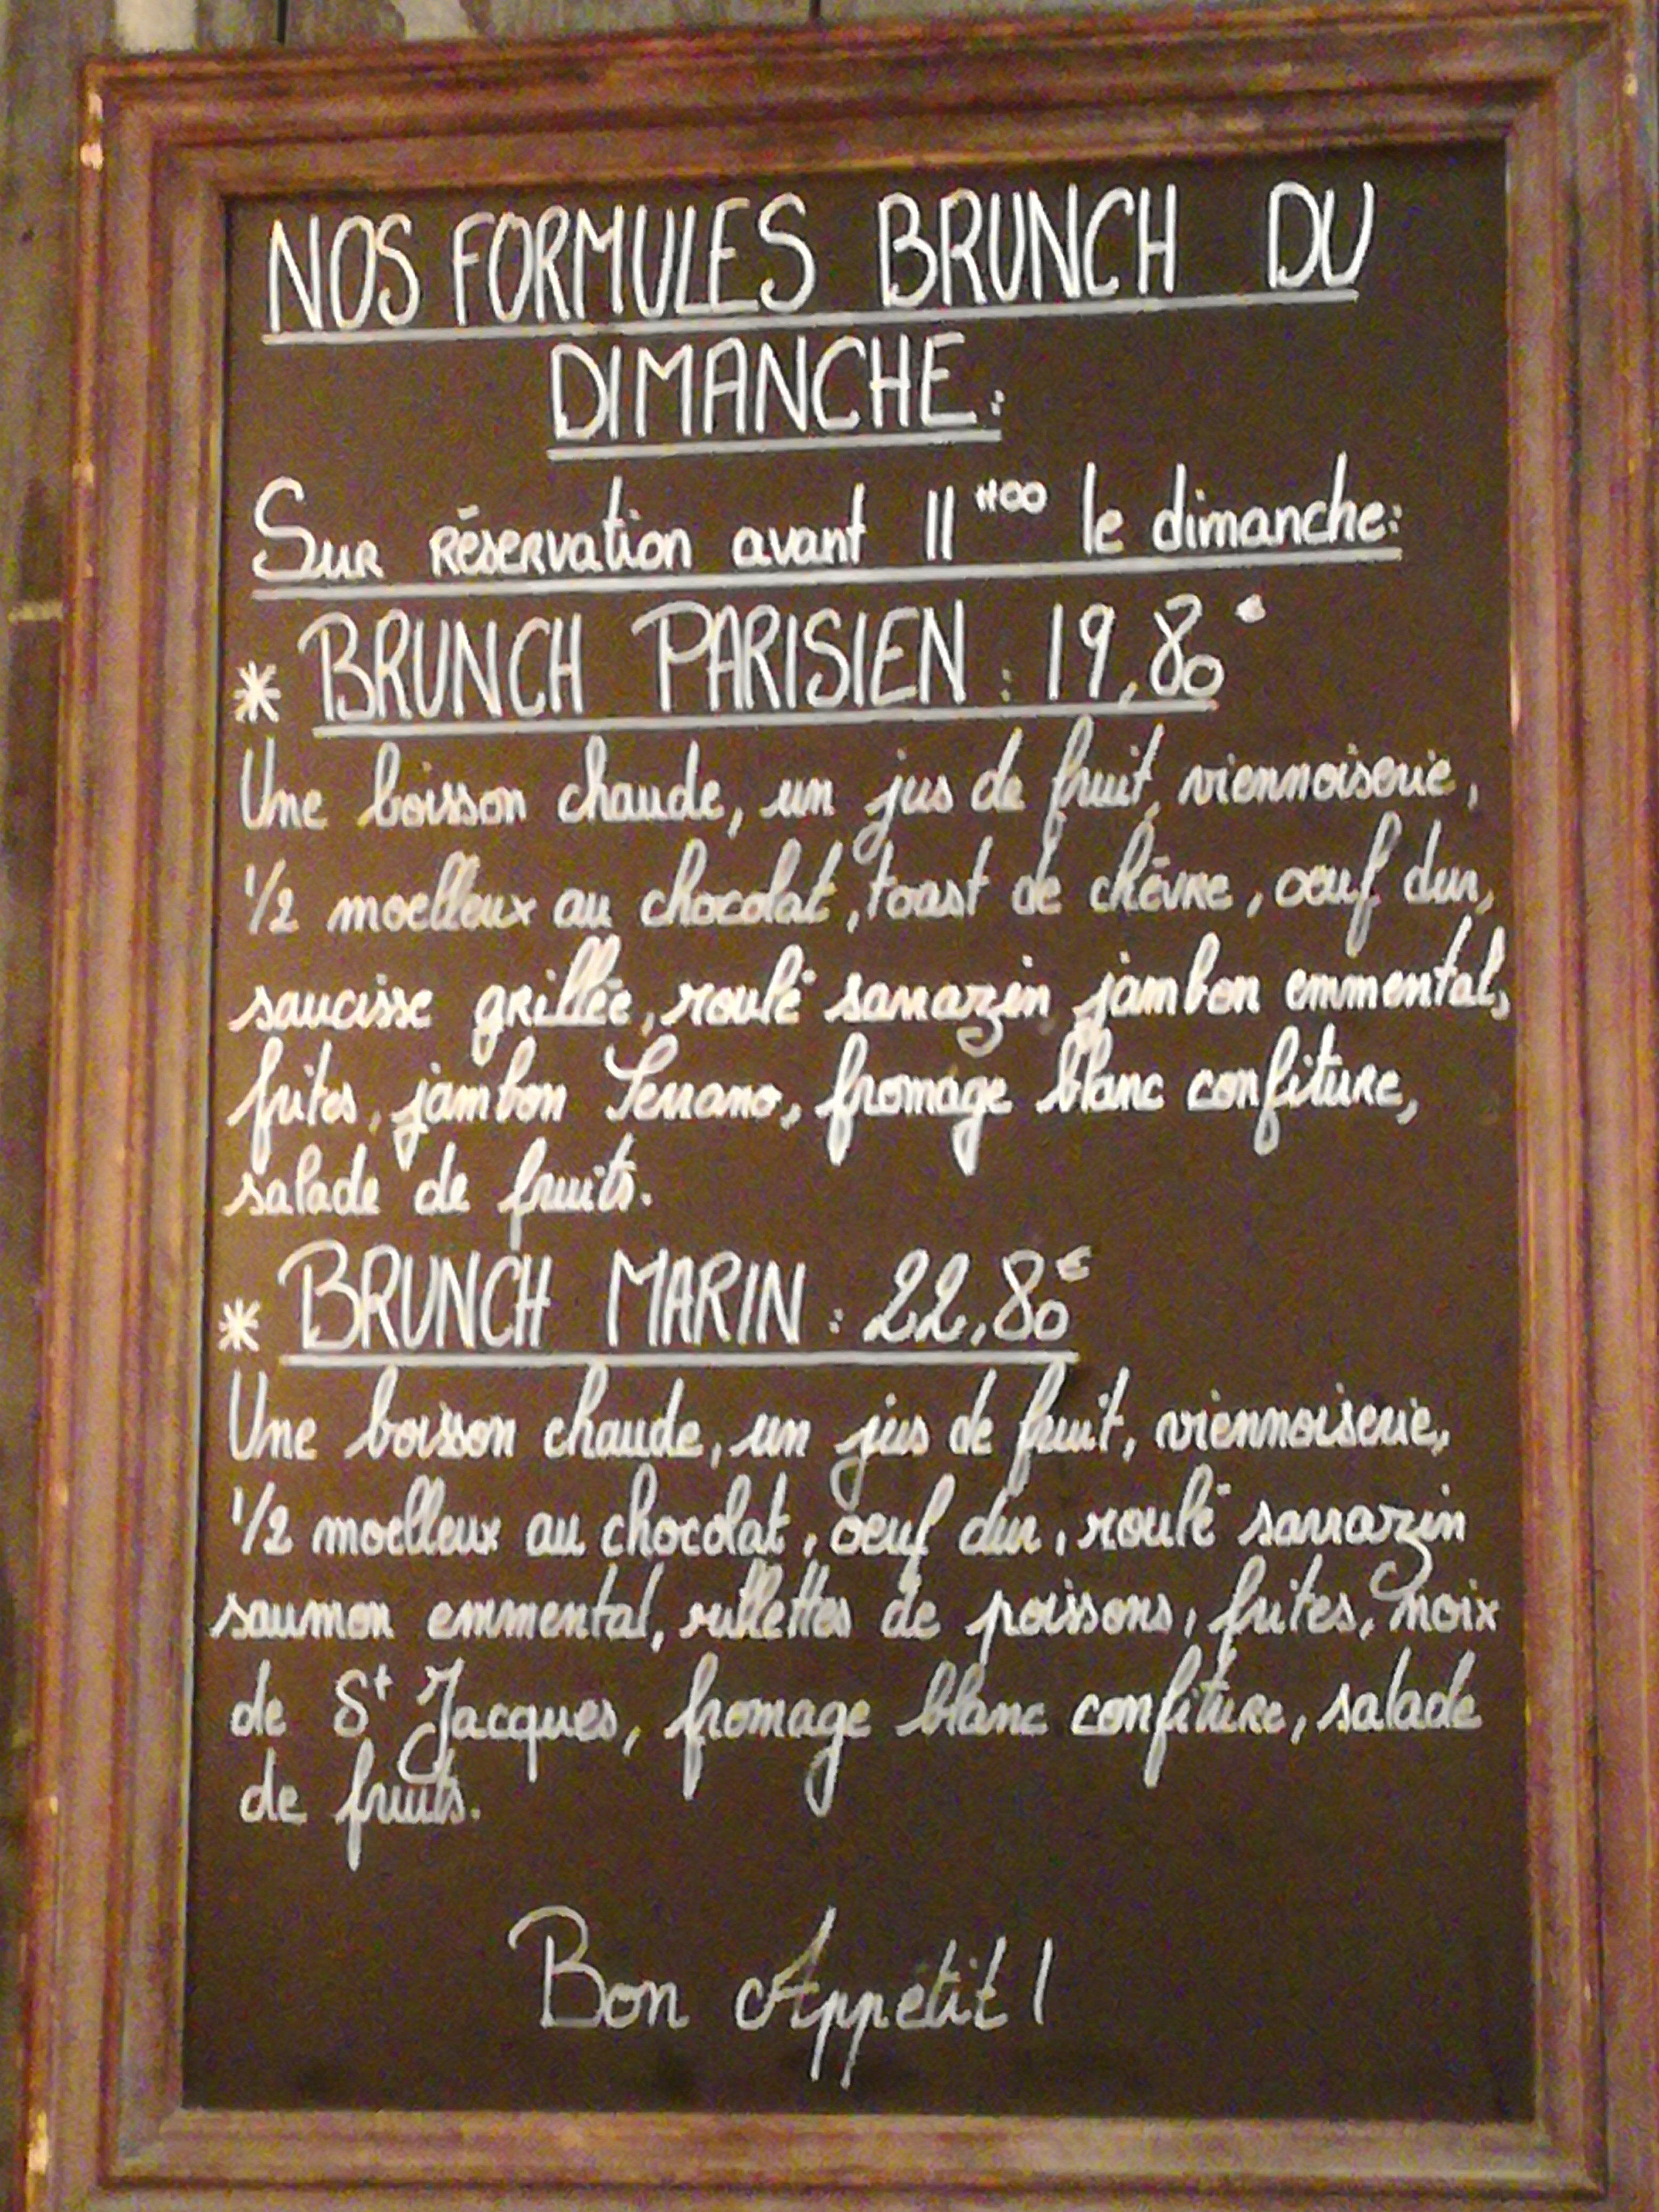 NOS FORMULES BRUNCH DU
DIMANCHE:
Sur réservation avant 11H00 le dimanche:
* BRUNCH PARISIEN : 19,80€
Une boisson chaude, un jus de fruit, viennoiserie,
1/2 moelleux au chocolat, toast de chèvre, oeuf dur,
saucisse grillée, roulé sarrazin jambon emmental,
frites, jambon Serrano, fromage blanc confiture,
salade de fruits.
* BRUNCH MARIN : 22,80€
Une boisson chaude, un jus de fruit, viennoiserie,
1/2 moelleux au chocolat, oeuf dur, roulé sarrazin
saumon emmental, rillettes de poissons, frites, noix
de St Jacques, fromage blanc confiture, salade
de fruits.
Bon Appétit !